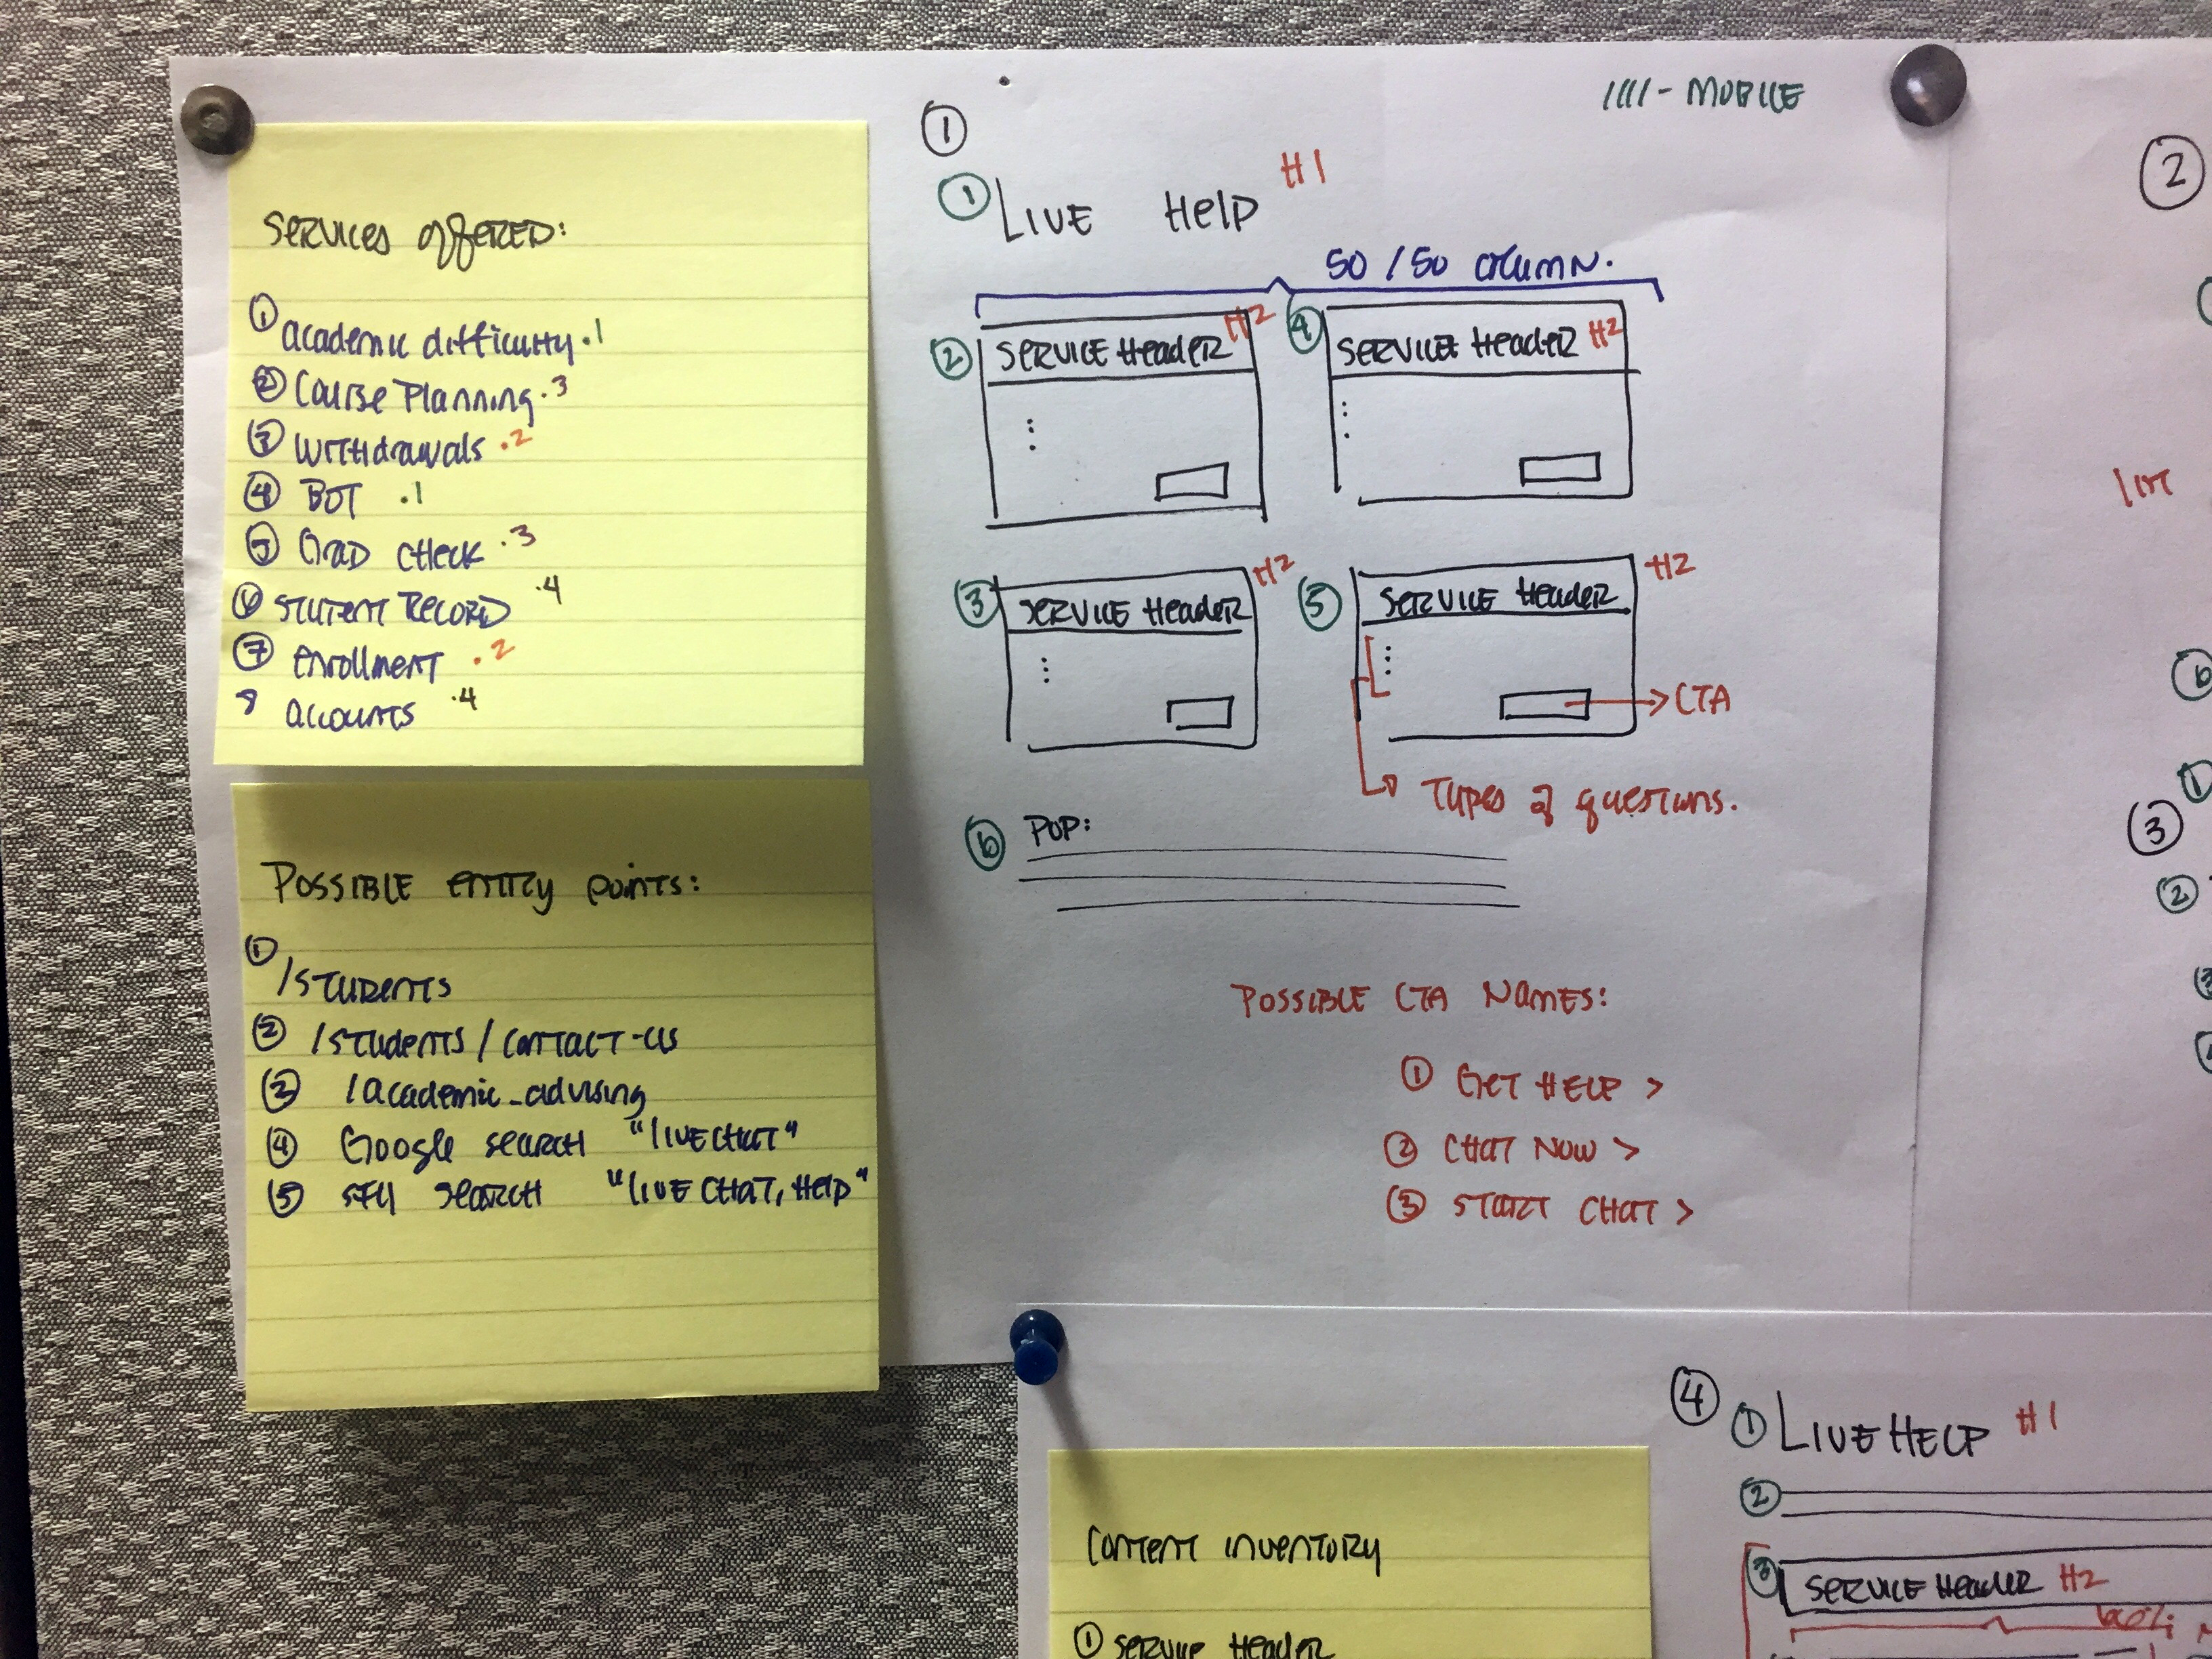 SERVICES OFFERED:
① academic difficulty .1
② Course Planning .3
③ WITHdrawals .2
④ BOT .1
⑤ GRAD CHECK .3
⑥ STUDENT RECORD .4
⑦ enrollment .2
8 accounts .4
POSSIBLE entry points:
① /STUDENTS
② /students/contact-us
③ /academic_advising
④ Google search "LIVE CHAT"
⑤ SFU SEARCH "LIVE CHAT, Help"
①
//// - MOBILE
① LIVE Help H1
50/50 column.
② SERVICE Header H2
④ SERVICE Header H2
③ SERVICE Header H2
⑤ SERVICE Header H2
CTA
Types of questions.
⑥ POP:
POSSIBLE CTA NAMES:
① GET HELP >
② CHAT NOW >
③ START CHAT >
②
⑥
①
③
②
④
① LIVE HELP H1
②
③ SERVICE Header H2
Content inventory
① service Header